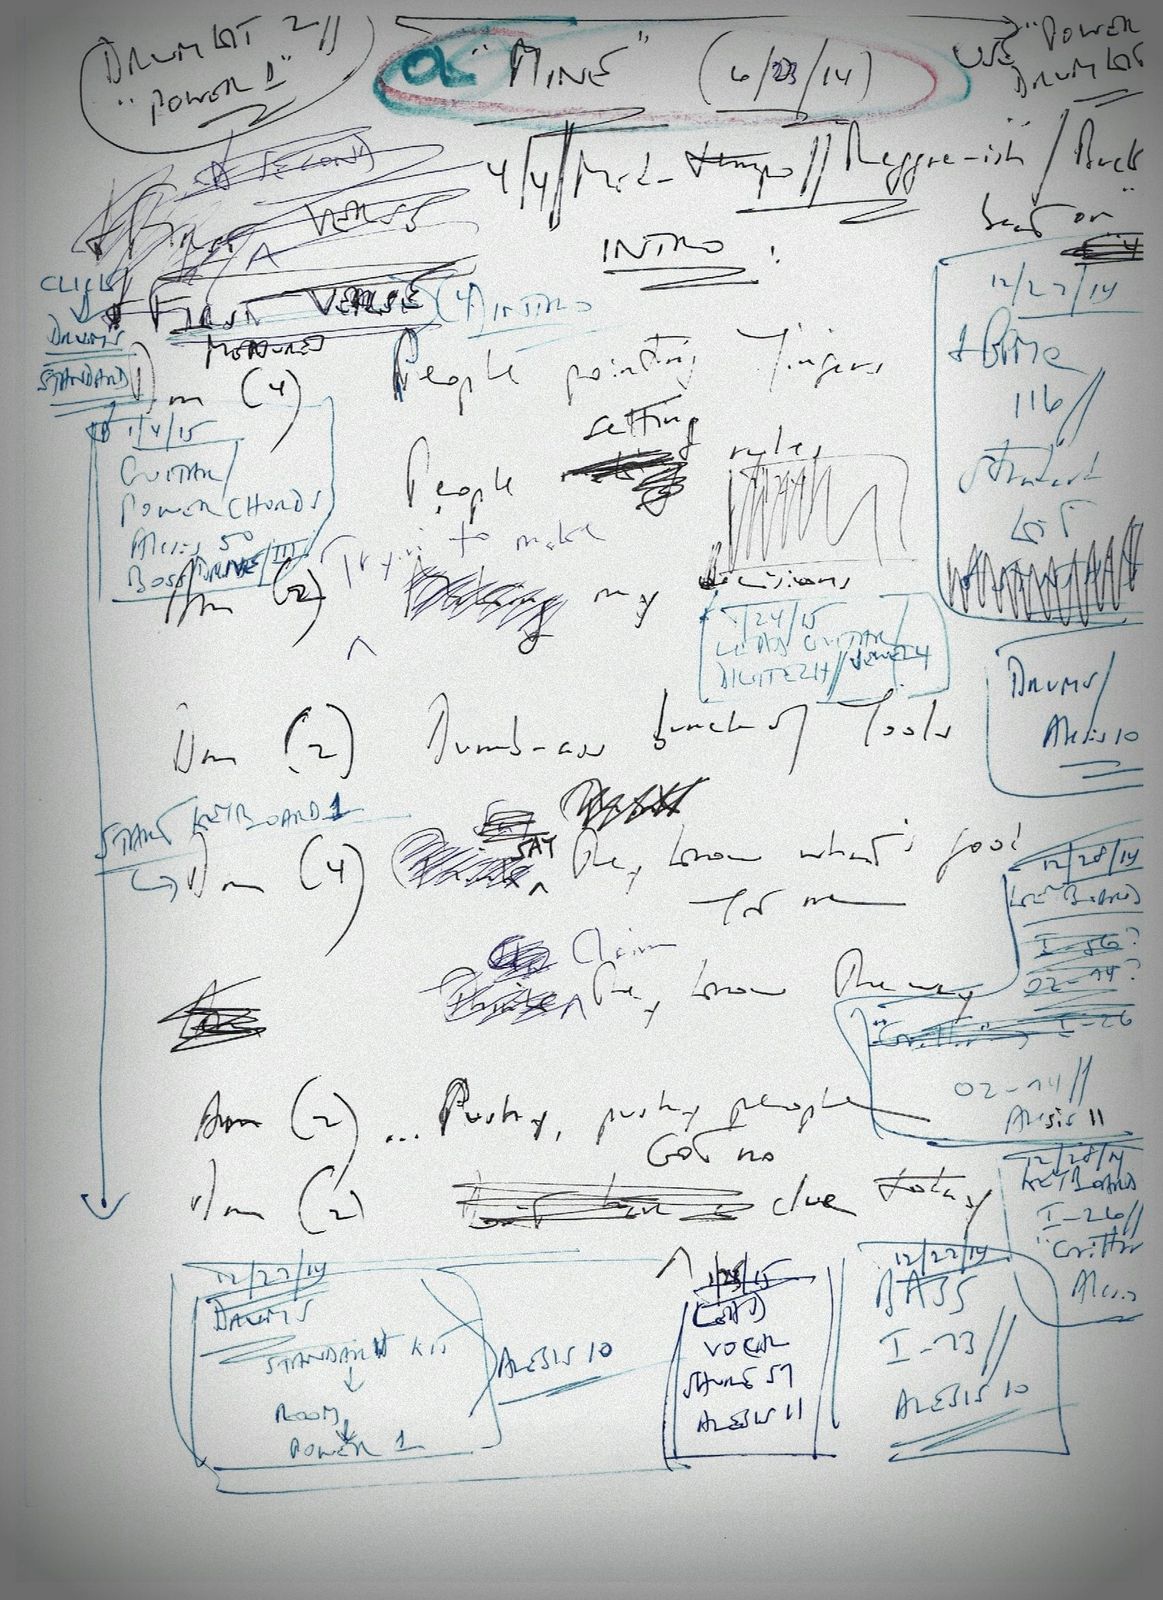 DRUM KIT 2//
"POWER 1"
OK "MINE" (6/23/14)
USE "POWER
DRUM KIT
4/4/Mid-tempo//Reggae-ish/Rock
beat on
SECOND
VERSE
INTRO:
CLICK
DRUMS
STANDARD
FIRST VERSE (4) INTRO
MEASURES
Dm (4) People pointing fingers
setting
People rules
Tryin to make
Am (2) my decisions
Dm (2) Dumb-ass bunch of fools
START KEYBOARD 1
Dm (4) SAY They know what's good
for me
Claim
They know the way
Am (2) ... Pushy, pushy people
GOT no
Dm (2) clue today
1/4/15
GUITAR/
POWER CHORDS
Alesis 50
BOSS
1/24/15
LEAD GUITAR/
DIGITECH/
12/27/14
116//
Standard
KIT
DRUMS/
Alesis 10
12/28/14
KEYBOARD
I-56?
02-14?
I-26
02-14//
Alesis 11
12/28/14
KEYBOARD
I-26//
"Critter
Alesis
12/27/14
DRUMS
STANDARD KIT
ROOM
POWER 1
ALESIS 10
1/25/15
LEAD
VOCAL
SHURE 57
ALESIS 11
12/27/14
BASS
I-73//
ALESIS 10